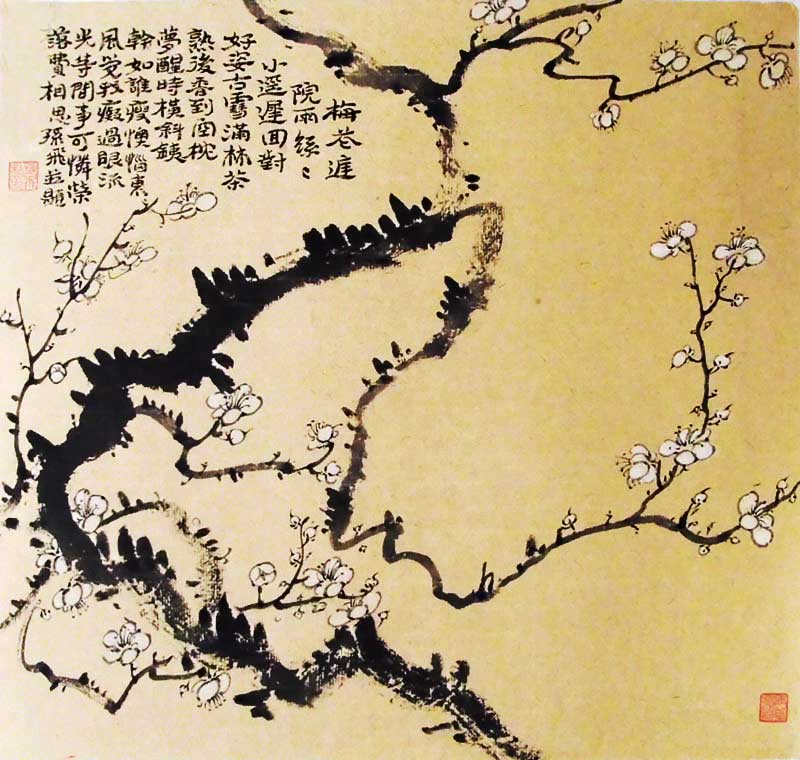 梅苍涯
院雨縁〻
小逕遲回對
好姿古雪滿林茶
熟後香到囱枕
夢醒時橫斜鉄
幹如誰瘦懊惱東
風覚我癡過眼流
光等閒事可憐榮
落費相思孫飛並題